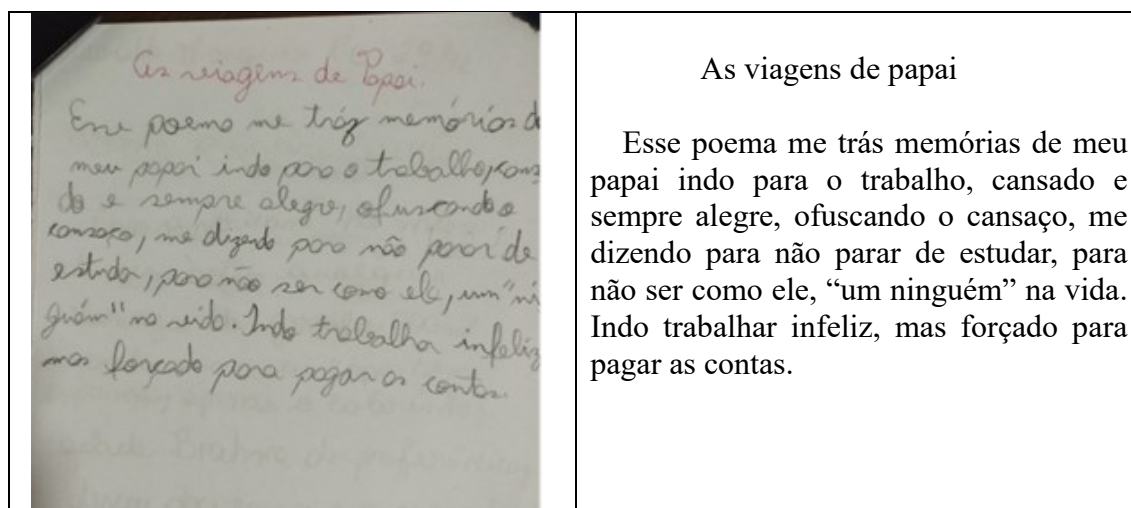 As viagens de Papai.
Esse poema me tráz memórias d
meu papai indo para o trabalho, cans
do e sempre alegre, ofuscando o
cansaço, me dizendo para não parar de
estudar, para não ser como ele, um "ni
guém" na vida. Indo trabalhar infeliz
mas forçado para pagar as contas.
As viagens de papai
Esse poema me trás memórias de meu
papai indo para o trabalho, cansado e
sempre alegre, ofuscando o cansaço, me
dizendo para não parar de estudar, para
não ser como ele, “um ninguém” na vida.
Indo trabalhar infeliz, mas forçado para
pagar as contas.